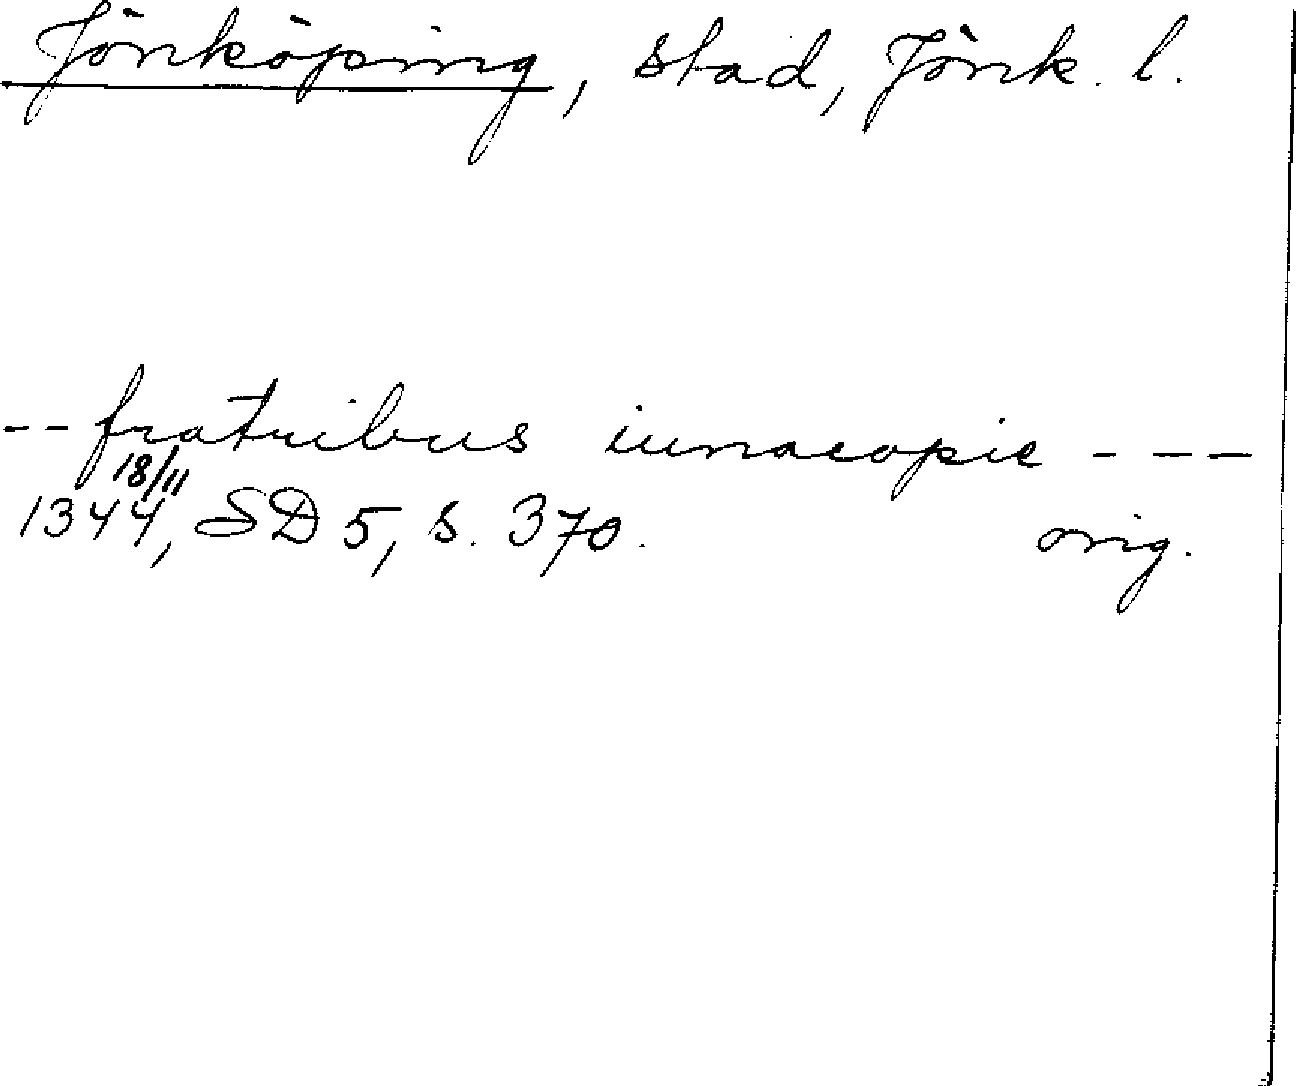 Jönköping, stad, Jönk. l.
-- fratribus iunacopie ---
18/11
1344, SD 5, s. 370. orig.